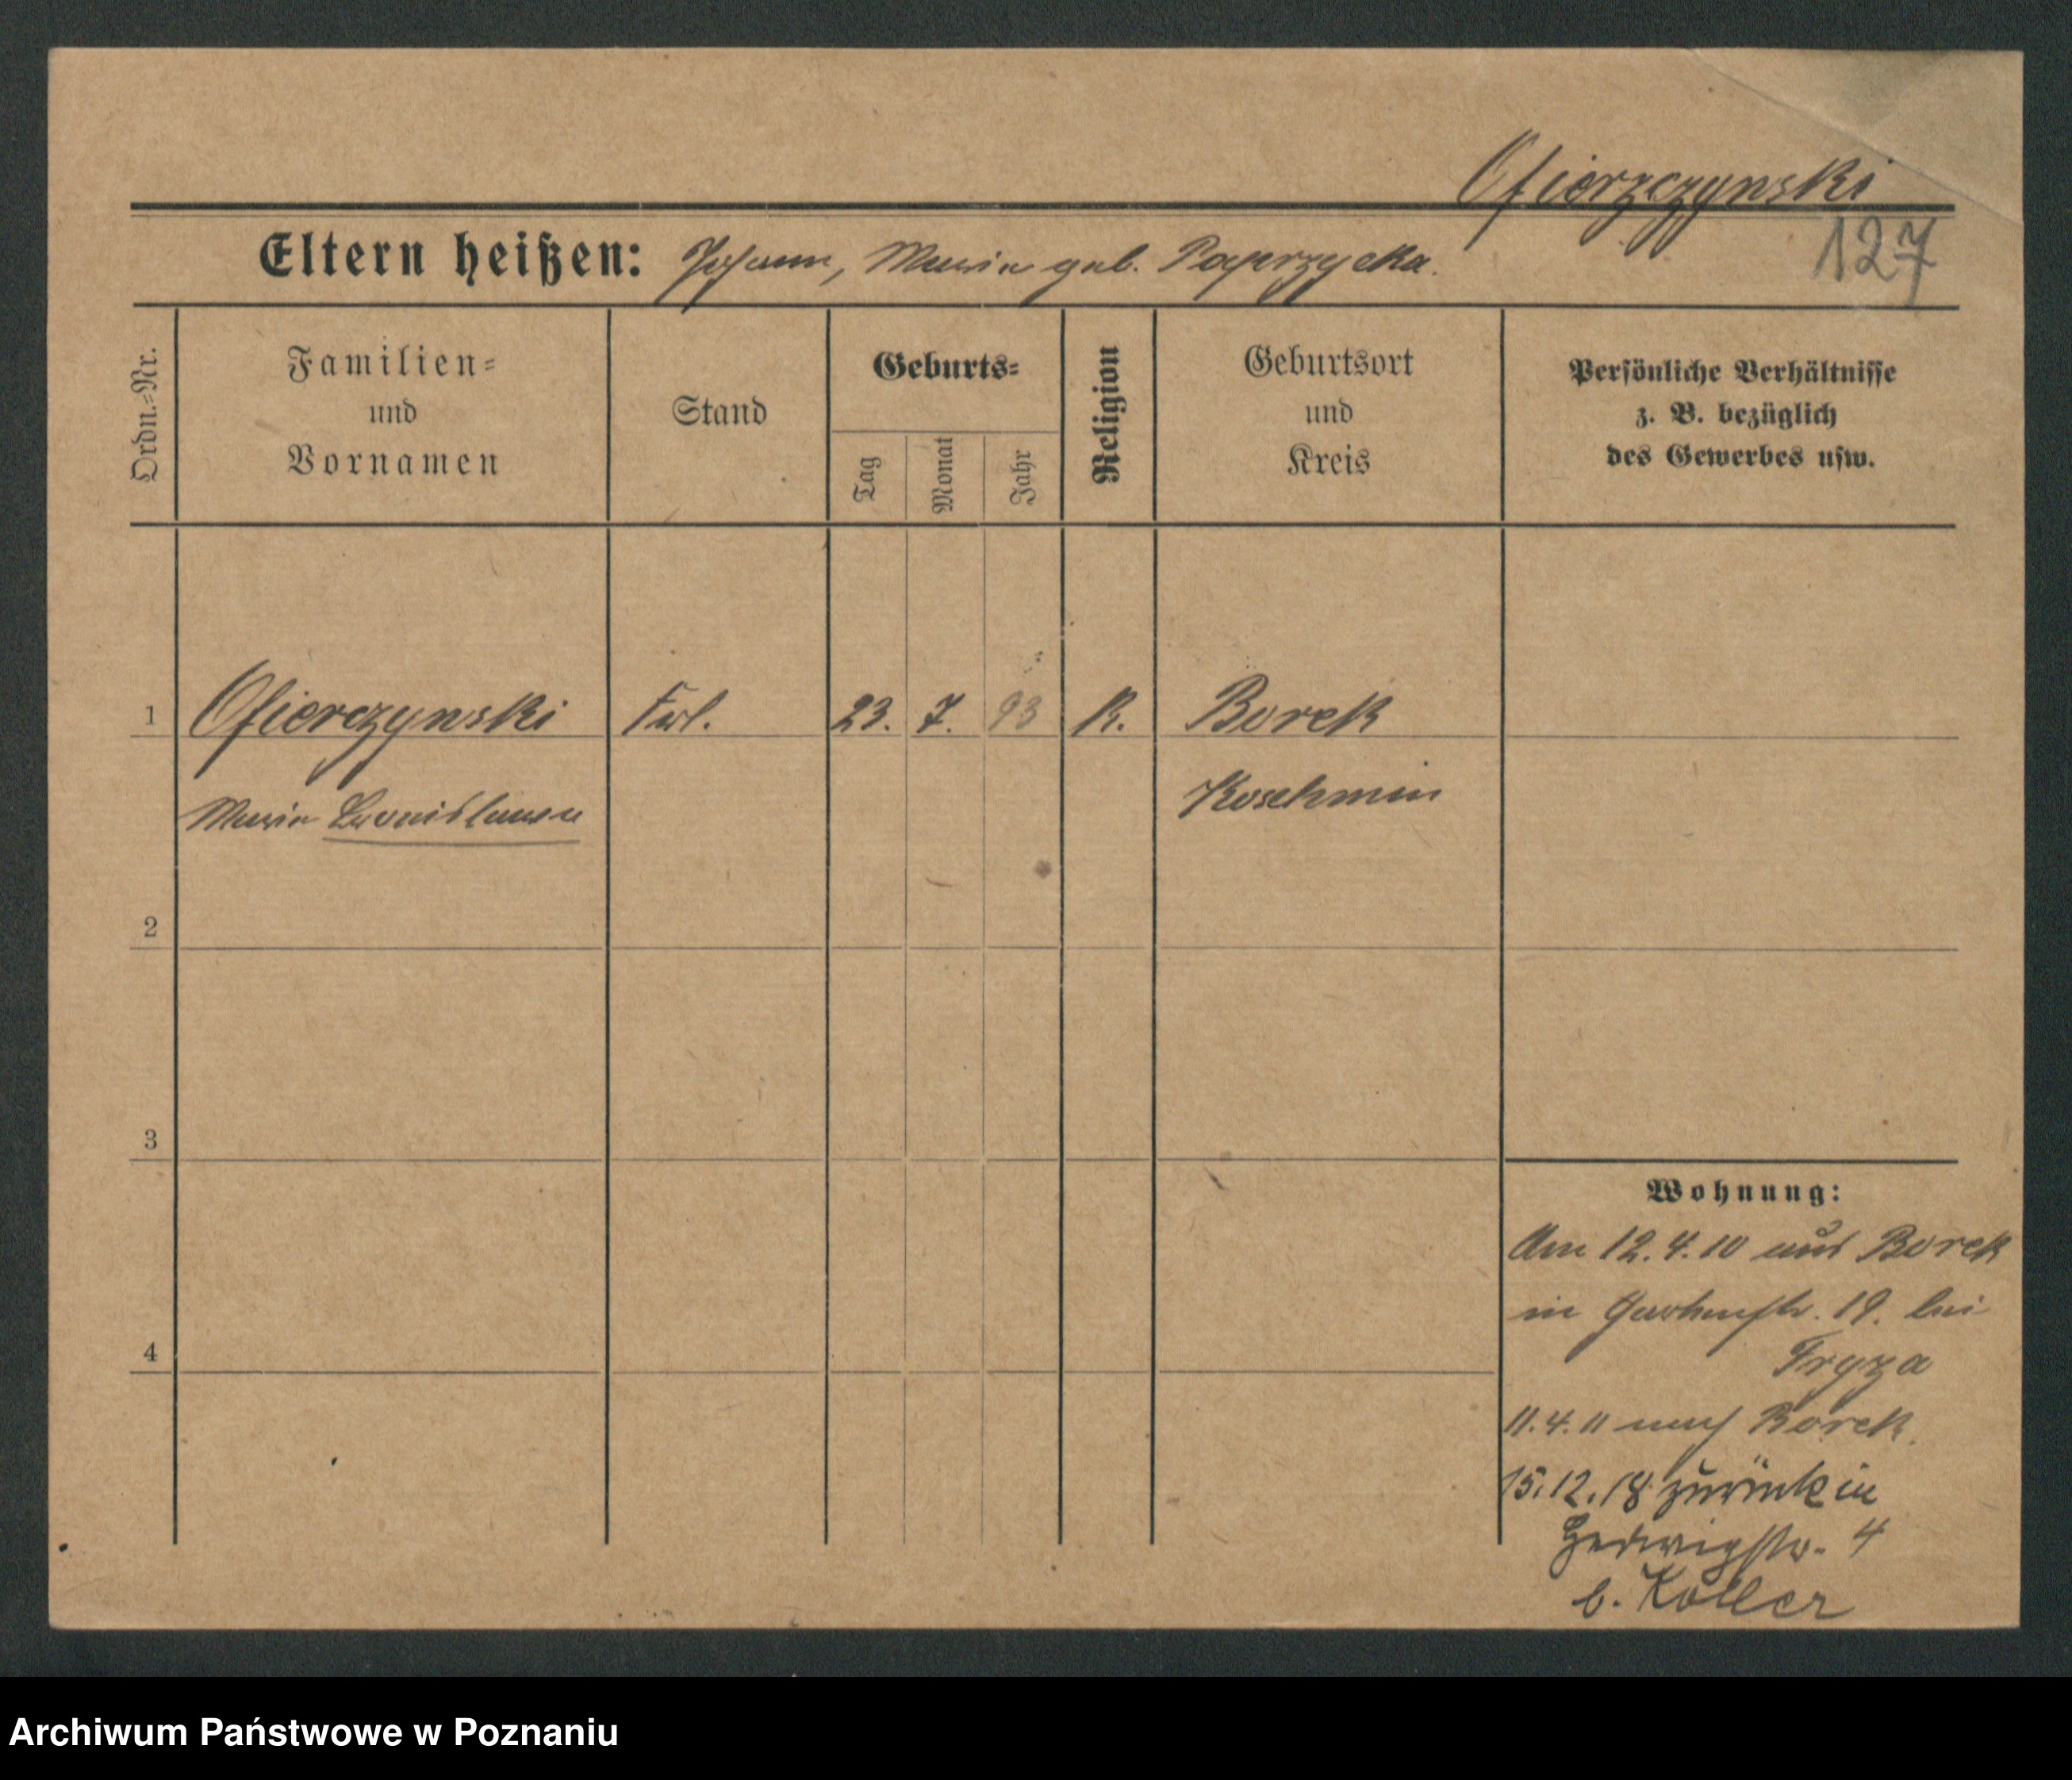 Ofierzczynski
Eltern heißen: Johann, Maria geb. Paprzycka.
127
Ordn.-Nr.
Familien- und Vornamen
Stand
Geburts-
Tag
Monat
Jahr
Religion
Geburtsort und Kreis
Persönliche Verhältnisse
z. B. bezüglich
des Gewerbes usw.
1 Ofierczynski Frl. 23. 7. 93 R. Borek
Maria Bronislawa Koschmin
2
3
4
Wohnung:
Am 12.4.10 aus Borek
in 19. bei
Fryza
11.4.11 nach Borek.
15.12.18 zurück in
Hedwigstr. 4
b. Koller
Archiwum Państwowe w Poznaniu